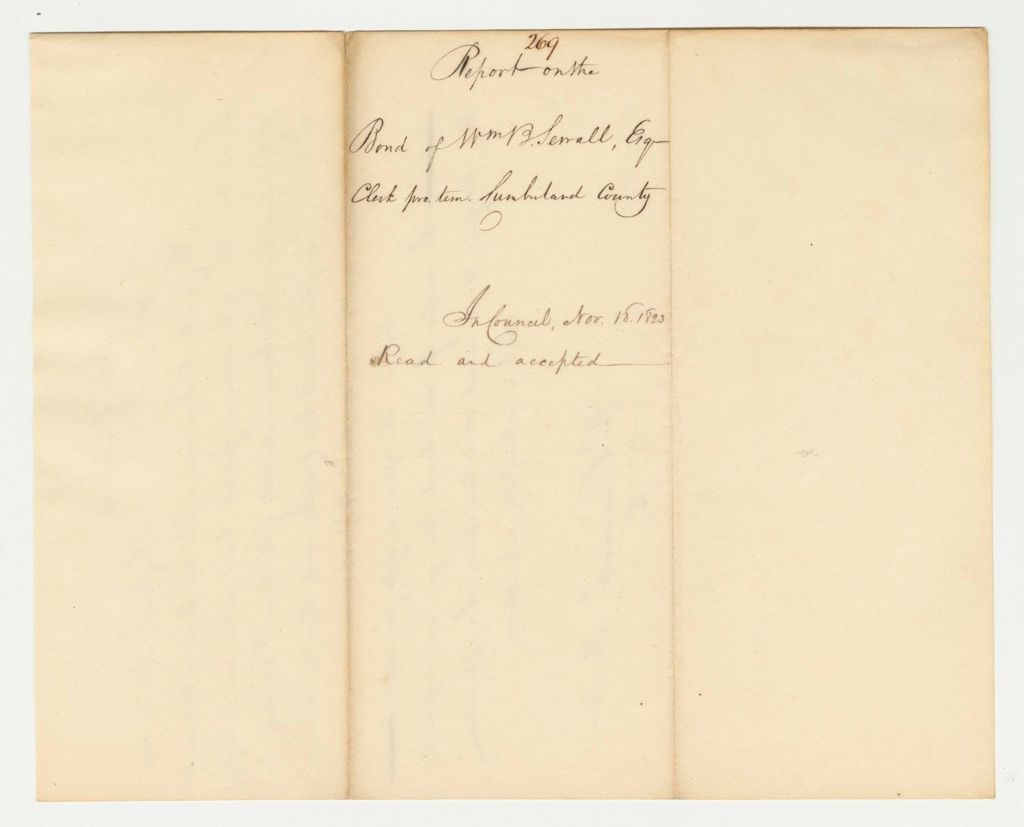 269
Report on the
Bond of Wm B. Sewall, Esq
Clerk pro. tem. Cumberland County
In Council, Nov. 18. 1823
Read and accepted